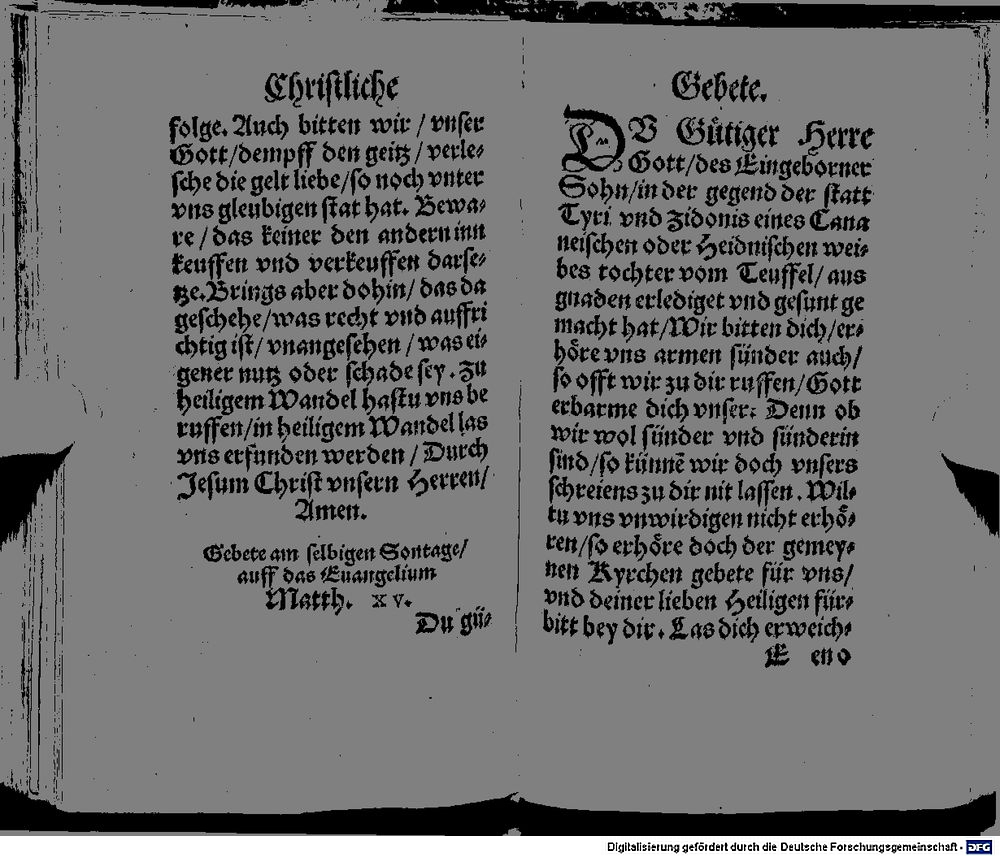 Christliche
folge. Auch bitten wir / vnser
Gott/dempff den geitz / verle-
sche die gelt liebe/so noch vnter
vns gleubigen stat hat. Bewa-
re / das keiner den andern inn
keuffen vnd verkeuffen darse-
tze. Brings aber dohin/ das da
geschehe/was recht vnd auffri
chtig ist/ vnangesehen / was ei-
gener nutz oder schade sey. Zu
heiligem Wandel hastu vns be
ruffen/in heiligem Wandel las
vns erfunden werden / Durch
Jesum Christ vnsern Herren/
Amen.
Gebete am selbigen Sontage/
auff das Euangelium
Matth. xv.
Du gü-
Gebete.
DV Gütiger Herre
Gott/des Eingeborner
Sohn/in der gegend der statt
Tyri vnd Zidonis eines Cana
neischen oder Heidnischen wei-
bes tochter vom Teuffel/ aus
gnaden erlediget vnd gesunt ge
macht hat/Wir bitten dich/er-
höre vns armen sünder auch/
so offt wir zu dir ruffen/Gott
erbarme dich vnser: Denn ob
wir wol sünder vnd sünderin
sind/so künnē wir doch vnsers
schreiens zu dir nit lassen. Wil-
tu vns vnwirdigen nicht erhö-
ren/so erhöre doch der gemey-
nen Kyrchen gebete für vns/
vnd deiner lieben Heiligen für-
bitt bey dir. Las dich erweich-
E en o
Digitalisierung gefördert durch die Deutsche Forschungsgemeinschaft - DFG